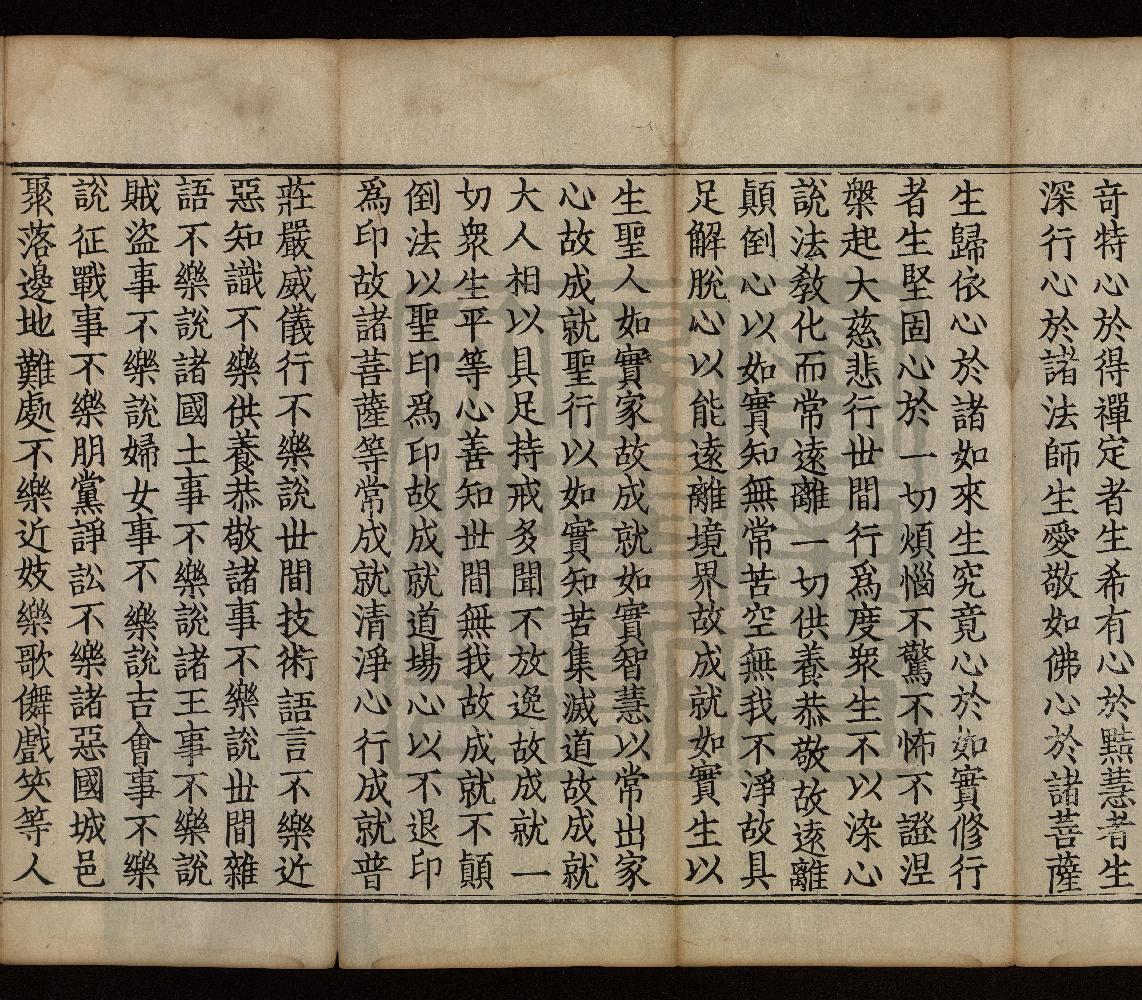 竒特心於得禪定者生希有心於黠慧者生
深行心於諸法師生愛敬如佛心於諸菩薩
生歸依心於諸如來生究竟心於如實修行
者生堅固心於一切煩惱不驚不怖不證涅
槃起大慈悲行世間行爲度衆生不以染心
說法教化而常遠離一切供養恭敬故遠離
顛倒心以如實知無常苦空無我不淨故具
足解脫心以能遠離境界故成就如實生以
生聖人如實家故成就如實智慧以常出家
心故成就聖行以如實知苦集滅道故成就
大人相以具足持戒多聞不放逸故成就一
切衆生平等心善知世間無我故成就不顛
倒法以聖印爲印故成就道場心以不退印
爲印故諸菩薩等常成就清淨心行成就普
莊嚴威儀行不樂說世間技術語言不樂近
惡知識不樂供養恭敬諸事不樂說世間雜
語不樂說諸國土事不樂說諸王事不樂說
賊盜事不樂說婦女事不樂說古會事不樂
說征戰事不樂朋黨諍訟不樂諸惡國城邑
聚落邊地難處不樂近妓樂歌儛戲笑等人